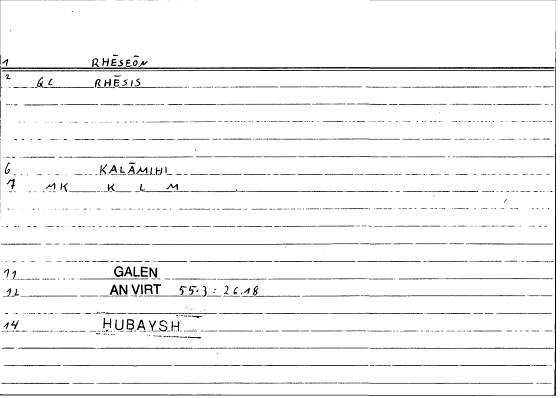 1 RHĒSEŌN
2 GC RHĒSIS
6 KALĀMIHI
7 MK K L M
11 GALEN
12 AN VIRT 55.3 : 26.18
14 HUBAYSH